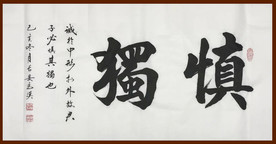 慎獨
誠於中形於外故君
子必慎其獨也
己亥冬月